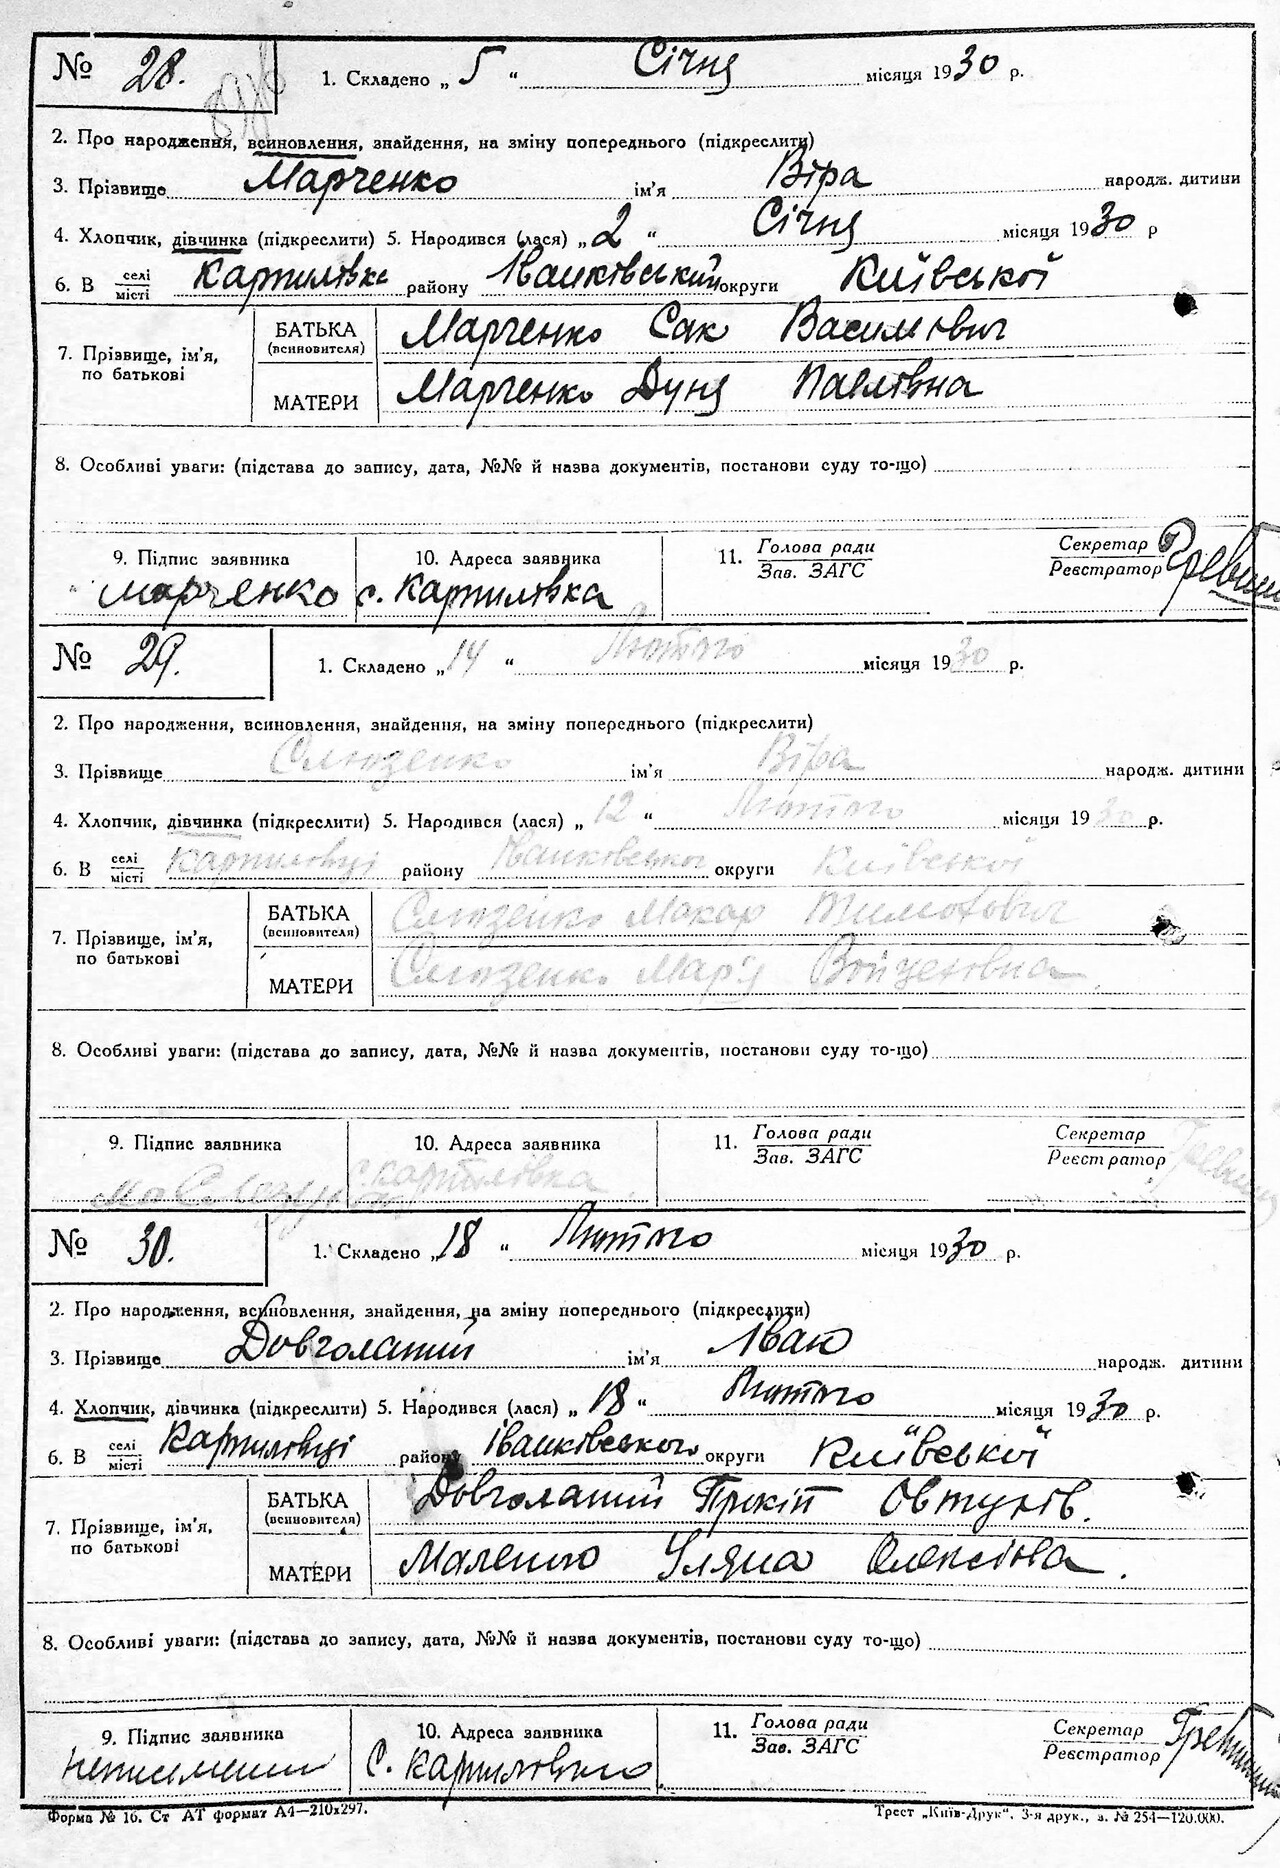 № 28. 1. Складено „ 5 “ Січня місяця 1930 р.
2. Про народження, всиновлення, знайдення, на зміну попереднього (підкреслити)
3. Прізвище Марченко ім'я Віра народж. дитини
4. Хлопчик, дівчинка (підкреслити) 5. Народився (лася) „ 2 “ Січня місяця 1930 р
6. В селі місті Карпилівка району Іванківський округи Київської
7. Прізвище, ім'я, по батькові БАТЬКА (всиновителя) Марченко Сак Василович
МАТЕРИ Марченко Дуня Павлівна
8. Особливі уваги: (підстава до запису, дата, №№ й назва документів, постанови суду то-що)
9. Підпис заявника 10. Адреса заявника 11. Голова ради Зав. ЗАГС Секретар Реєстратор
Марченко с. Карпилівка
№ 29. 1. Складено „ 14 “ Лютого місяця 1930 р.
2. Про народження, всиновлення, знайдення, на зміну попереднього (підкреслити)
3. Прізвище Слюзенко ім'я Віра народж. дитини
4. Хлопчик, дівчинка (підкреслити) 5. Народився (лася) „ 12 “ Лютого місяця 1930 р.
6. В селі місті Карпиловці району Іванковського округи Київської
7. Прізвище, ім'я, по батькові БАТЬКА (всиновителя) Слюзенко Макар Тимохович
МАТЕРИ Слюзенко Мар'я
8. Особливі уваги: (підстава до запису, дата, №№ й назва документів, постанови суду то-що)
9. Підпис заявника 10. Адреса заявника 11. Голова ради Зав. ЗАГС Секретар Реєстратор
с. Карпилівка
№ 30. 1. Складено „ 18 “ Лютого місяця 1930 р.
2. Про народження, всиновлення, знайдення, на зміну попереднього (підкреслити)
3. Прізвище Довголапий ім'я Іван народж. дитини
4. Хлопчик, дівчинка (підкреслити) 5. Народився (лася) „ 18 “ Лютого місяця 1930 р.
6. В селі місті Карпиловці району Іванківського округи Київської
7. Прізвище, ім'я, по батькові БАТЬКА (всиновителя) Довголапий Прокіп
МАТЕРИ Уляна
8. Особливі уваги: (підстава до запису, дата, №№ й назва документів, постанови суду то-що)
9. Підпис заявника 10. Адреса заявника 11. Голова ради Зав. ЗАГС Секретар Реєстратор
с.
Форма № 16. Ст АТ формат А4—210x297. Трест „Київ-Друк“. 3-я друк., з. № 254—120.000.